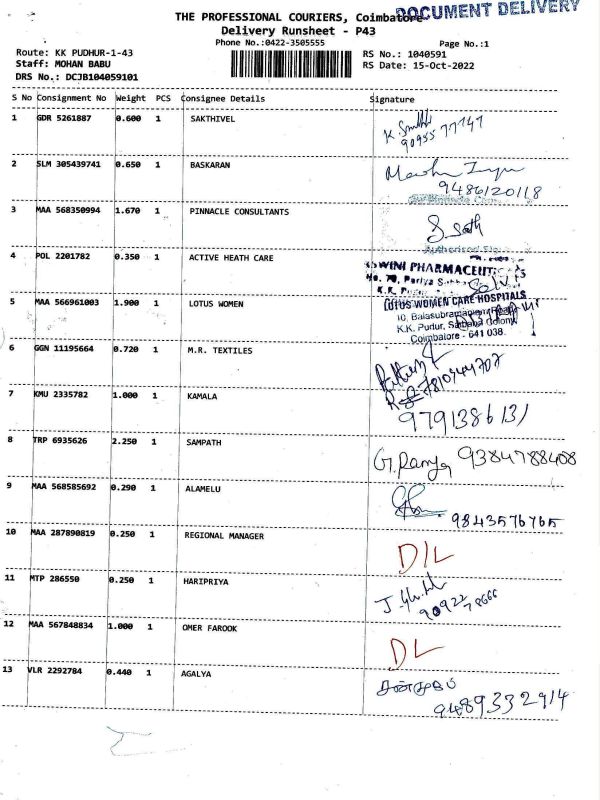 DOCUMENT DELIVERY
THE PROFESSIONAL COURIERS, Coimbatore
Delivery Runsheet - P43
Phone No.:0422-3505555
Page No.:1
Route: KK PUDHUR-1-43
RS No.: 1040591
Staff: MOHAN BABU
RS Date: 15-Oct-2022
DRS No.: DCJB104059101
S No Consignment No Weight PCS Consignee Details Signature
1 GDR 5261887 0.600 1 SAKTHIVEL
90955 77747
2 SLM 305439741 0.650 1 BASKARAN
9486120118
3 MAA 568350994 1.670 1 PINNACLE CONSULTANTS
4 POL 2201782 0.350 1 ACTIVE HEATH CARE
PHARMACEUTICALS
5 MAA 566961003 1.900 1 LOTUS WOMEN
LOTUS WOMEN CARE HOSPITALS
10, Balasubramaniam
K.K. Pudur, Saibaba Colony
Coimbatore - 641 038.
6 GGN 11195664 0.720 1 M.R. TEXTILES
7810944707
7 KMU 2335782 1.000 1 KAMALA
9791386131
8 TRP 6935626 2.250 1 SAMPATH
G. Ramya 9384788408
9 MAA 568585692 0.290 1 ALAMELU
9843576765
10 MAA 287890819 0.250 1 REGIONAL MANAGER
D/L
11 MTP 286550 0.250 1 HARIPRIYA
90922 78666
12 MAA 567848834 1.000 1 OMER FAROOK
DL
13 VLR 2292784 0.440 1 AGALYA
9489332914